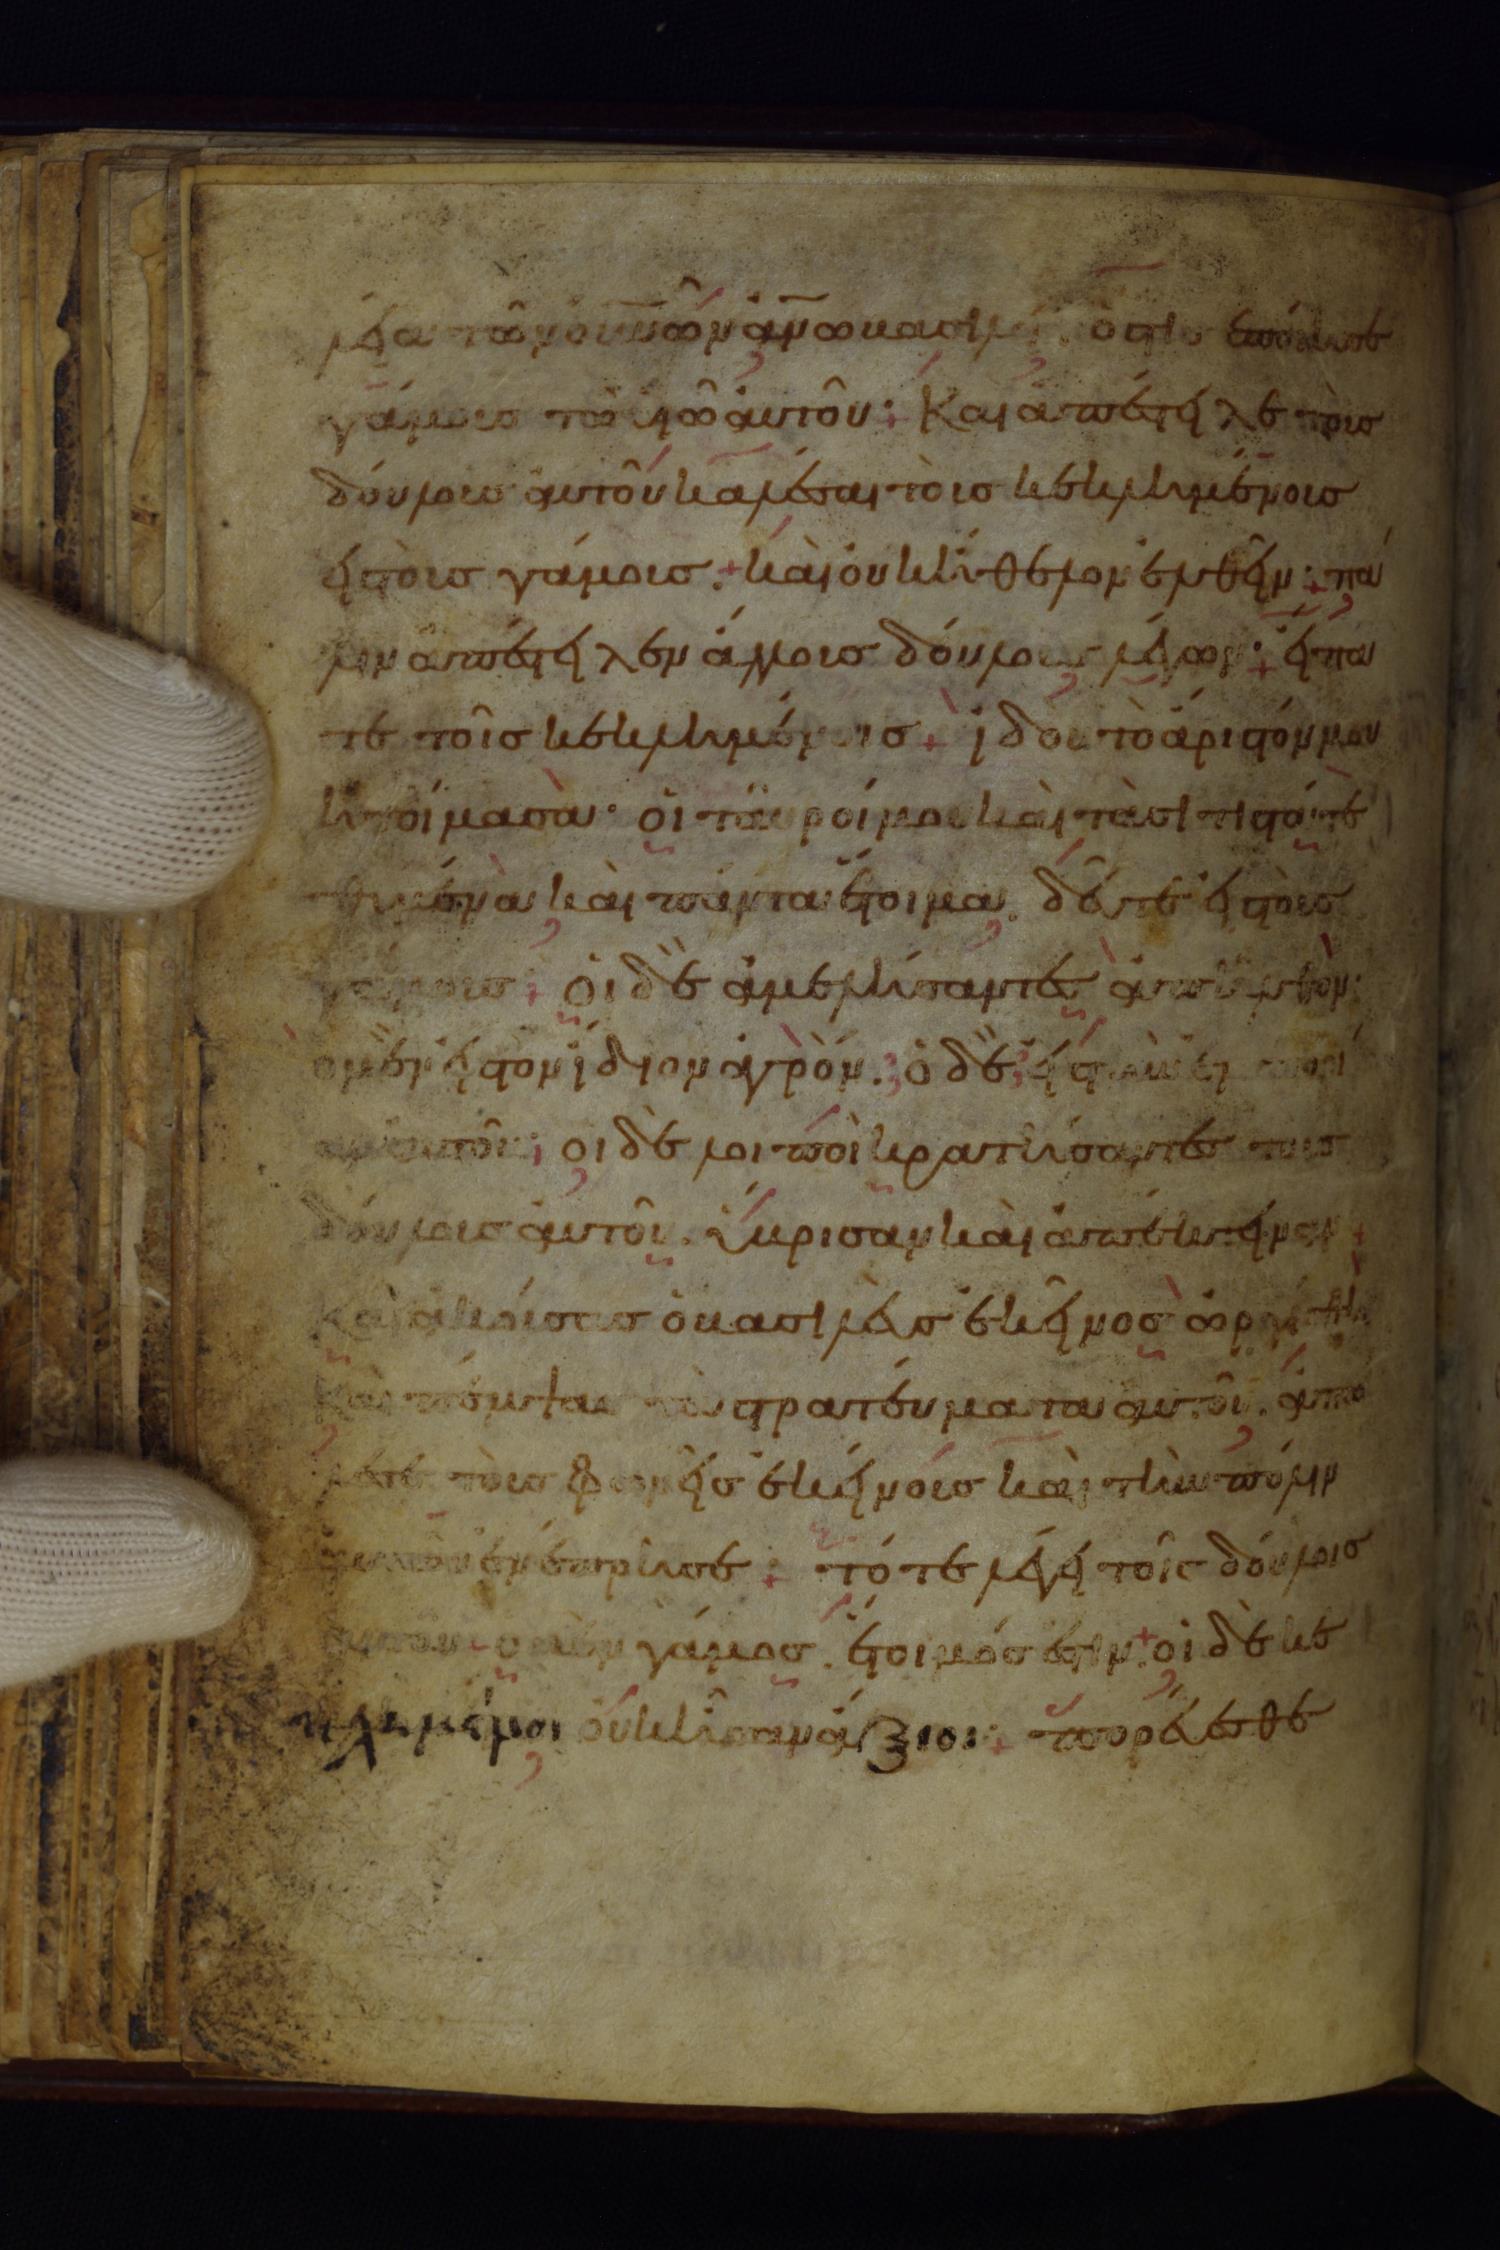 λεία τῶν οὐνῶν ἀνω βασιλεῖ. ὅστις ἐποίησε
γάμους τῶ υἱῶ ἀυτοῦ· Και ἀπέστειλε τοὺσ
δούλους ἀυτοῦ καλέσαι τοὺσ κεκλημένουσ
εἰς τοὺσ γάμουσ. + καὶ οὐκ ἤθελον ἐλθεῖν· πά
λιν ἀπέστειλεν ἄλλουσ δούλους λέγων· + εἴπα
τε τοῖσ κεκλημένοισ + ἰδοὺ τὸ ἄριστόν μου
ἡτοίμασα· οἱ ταῦροί μου καὶ τὰ σιτιστά τε
θυμένα καὶ πάντα ἕτοιμα. δεῦτε εἰς τοὺσ
γάμουσ + οἱ δὲ ἀμελήσαντεσ ἀπῆλθον·
ὁ μὲν εἰς τὸν ἴδιον ἀγρόν. ὁ δὲ εἰς τὴν ἐμπορί
αν ἀυτοῦ· οἱ δὲ λοιποὶ κρατήσαντεσ τοὺσ
δούλουσ ἀυτοῦ. ὕβρισαν καὶ ἀπέκτειναν +
Καὶ ἀκούσασ ὁ βασιλεὺσ ἐκεῖνοσ ὠργίσθη
Καὶ πέμψας τὰ στρατεύματα ἀυτοῦ. ἀπώ
λεσε τοὺσ φονεῖσ ἐκείνουσ καὶ τὴν πόλιν
ἀυτῶν ἐνέπρησε + τότε λέγει τοῖς δούλοισ
ἀυτοῦ· ὁ μὲν γάμοσ. ἕτοιμόσ ἐστιν + οἱ δὲ κε
κλημένοι οὐκ ἦσαν ἄξιοι· + πορεύεσθε